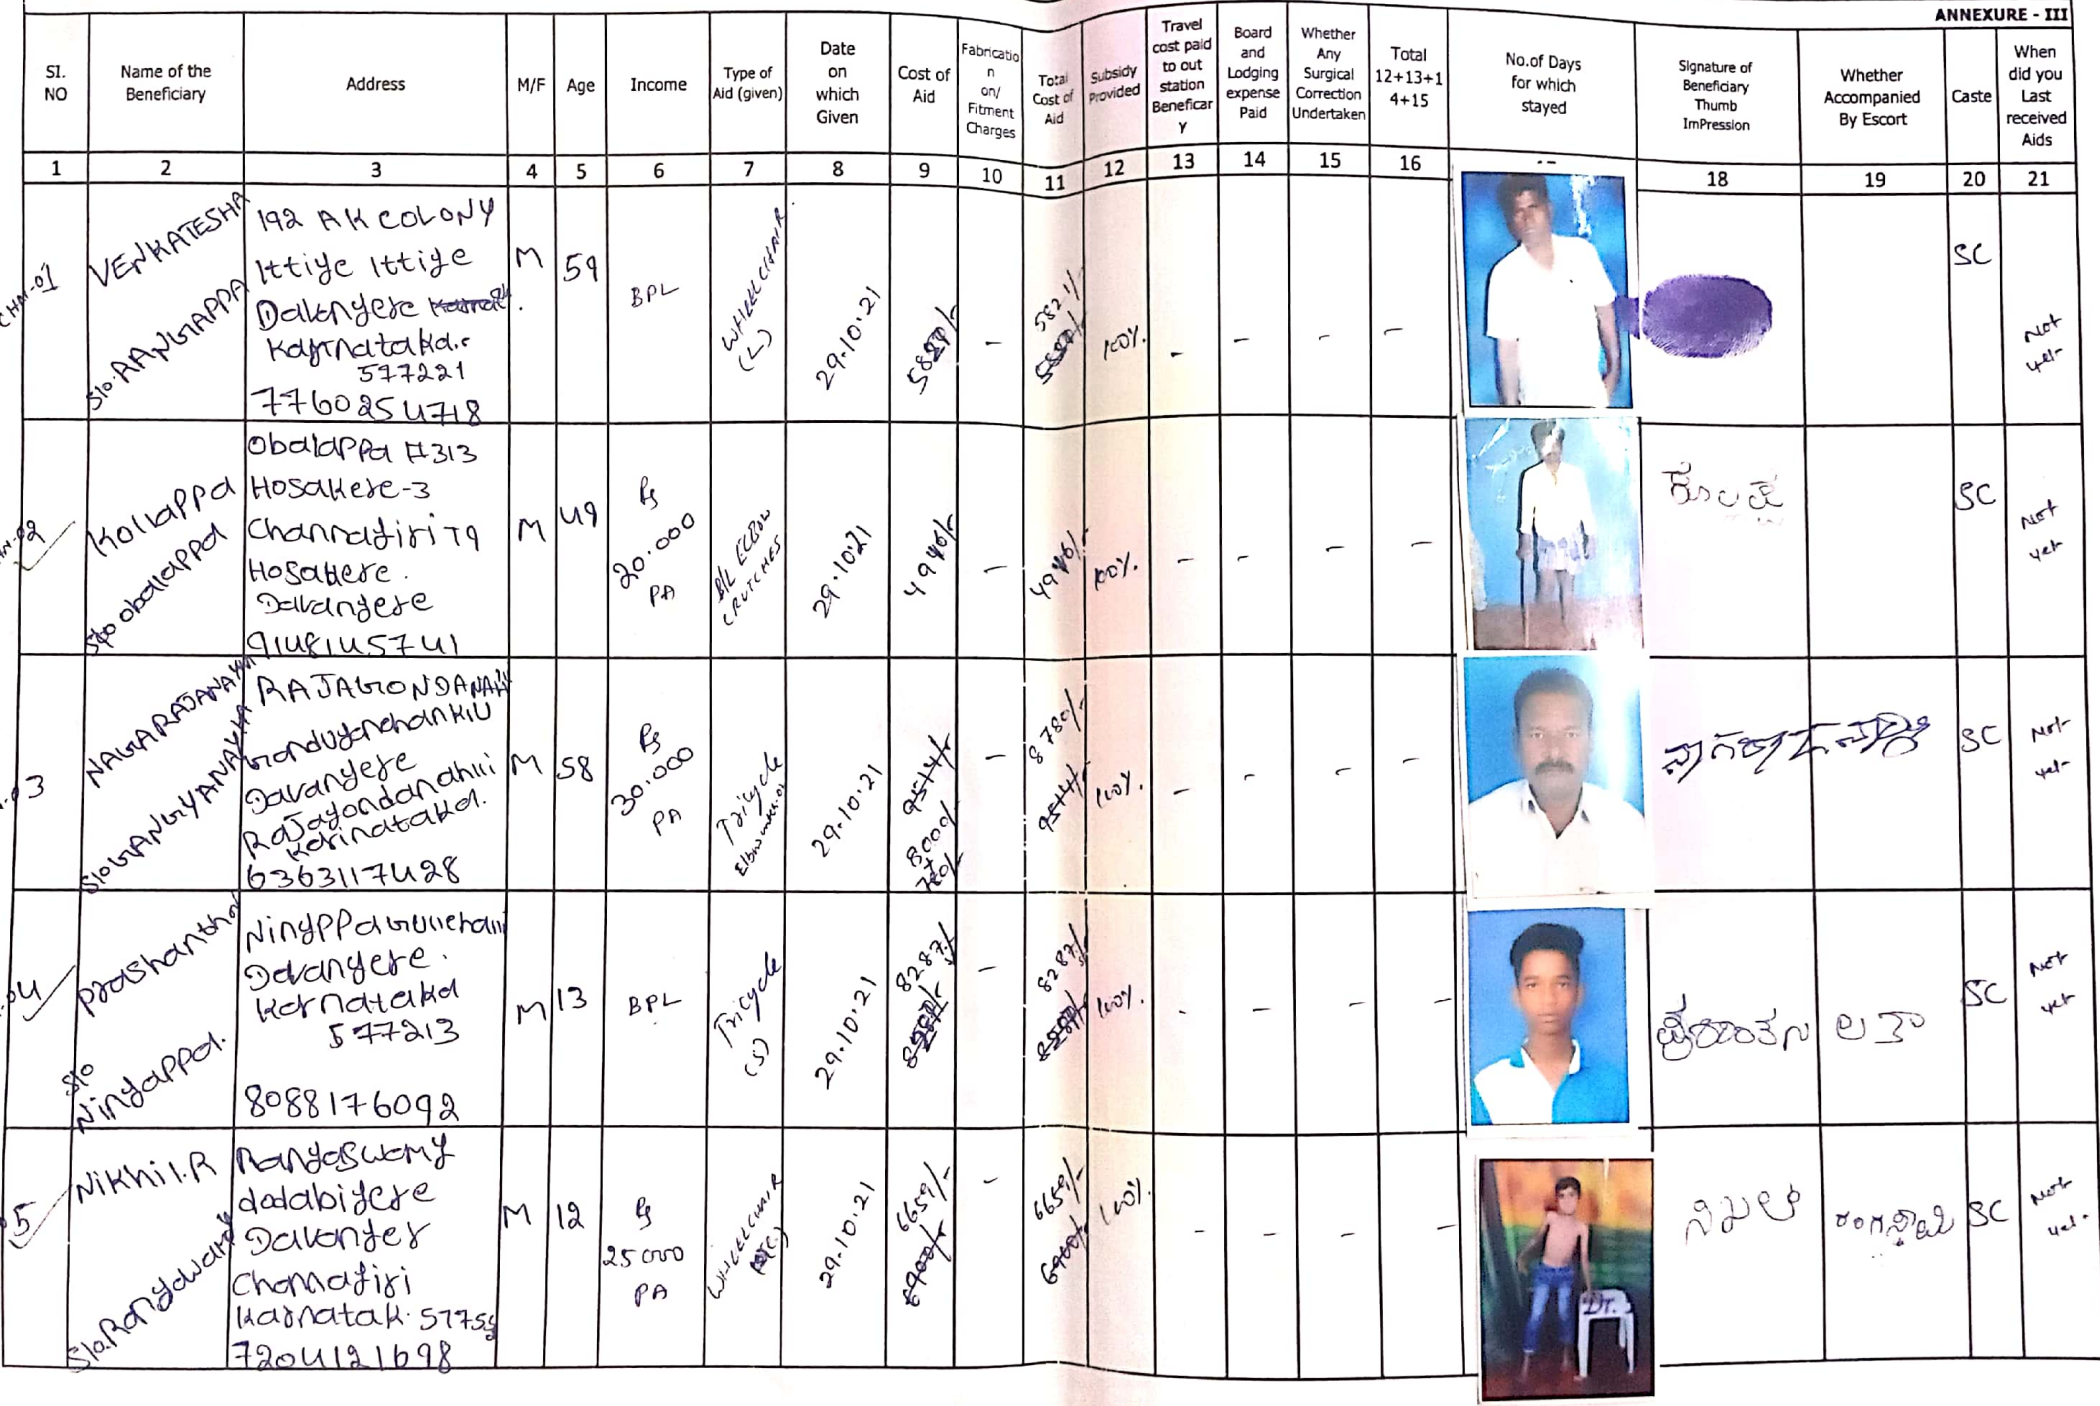 ANNEXURE - III
SI. NO
Name of the Beneficiary
Address
M/F
Age
Income
Type of Aid (given)
Date on which Given
Cost of Aid
Fabricatio n on/ Fitment Charges
Total Cost of Aid
Subsidy Provided
Travel cost paid to out station Beneficar y
Board and Lodging expense Paid
Whether Any Surgical Correction Undertaken
Total 12+13+1 4+15
No.of Days for which stayed
Signature of Beneficiary Thumb ImPression
Whether Accompanied By Escort
Caste
When did you Last received Aids
1 2 3 4 5 6 7 8 9 10 11 12 13 14 15 16 18 19 20 21
VENKATESHA
S/o. AANGAPPA
192 AK COLONY
Ittige Ittige
Davangere
Karnataka.
577221
7760254718
M
59
BPL
WHEELCHAIR
(L)
29.10.21
-
5821/-
100%.
- - - -
SC
Not
yet
Kollappa
S/o obalappa
Obalappa #313
Hosakere-3
Channagiri Tq
Hosakere.
Davangere
9148145741
M
49
Rs
20.000
PA
B/L ELBOW
CRUTCHES
29.10.21
4946/-
-
4946/-
100%.
- - - -
ಕೊಲ್ಲಪ್ಪ
SC
Not
yet
03
NAGARAJANAYKA
S/o GANGYANAYKA
RAJAGONDANAHA
Davangere
Rajagondanahlli
Karinataka.
6363117428
M
58
Rs
30.000
PA
Tricycle
29.10.21
9514/-
8000/-
+
780/-
-
8780/-
9514/-
100%.
- - - -
ನಾಗರಾಜನಾಯ್ಕ
SC
Not
yet
04
Prashantha
S/o
Ningappa.
Davangere.
Karnataka
577213
8088176092
M
13
BPL
Tricycle
(S)
29.10.21
8287/-
-
8287/-
100%.
- - - -
ಪ್ರಶಾಂತನ
ಲತಾ
SC
Not
yet
5
Nikhil.R
Rangaswamy
dodabigere
Davanger
Channagiri
Karnatak.
7204121698
M
12
Rs
25000
PA
WHEELCHAIR
29.10.21
6659/-
6900/-
-
6659/-
6900/-
100%.
- - - -
Dr.
ನಿಖಿಲ್
ರಂಗಸ್ವಾಮಿ
SC
Not
yet